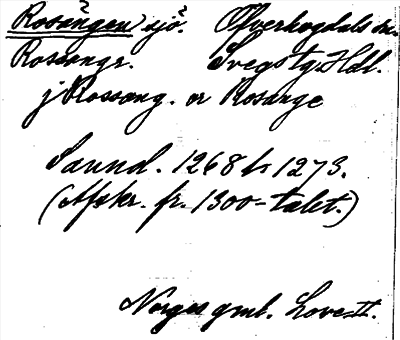 Rosången sjö. Öfverhogdals sn.
Rossangr. Svegs tg. Hdl.
j Rossæng. or Rosange
Saund. 1268 h 1273.
(Afskr. fr. 1300-talet.)
Norges gml. Love II.